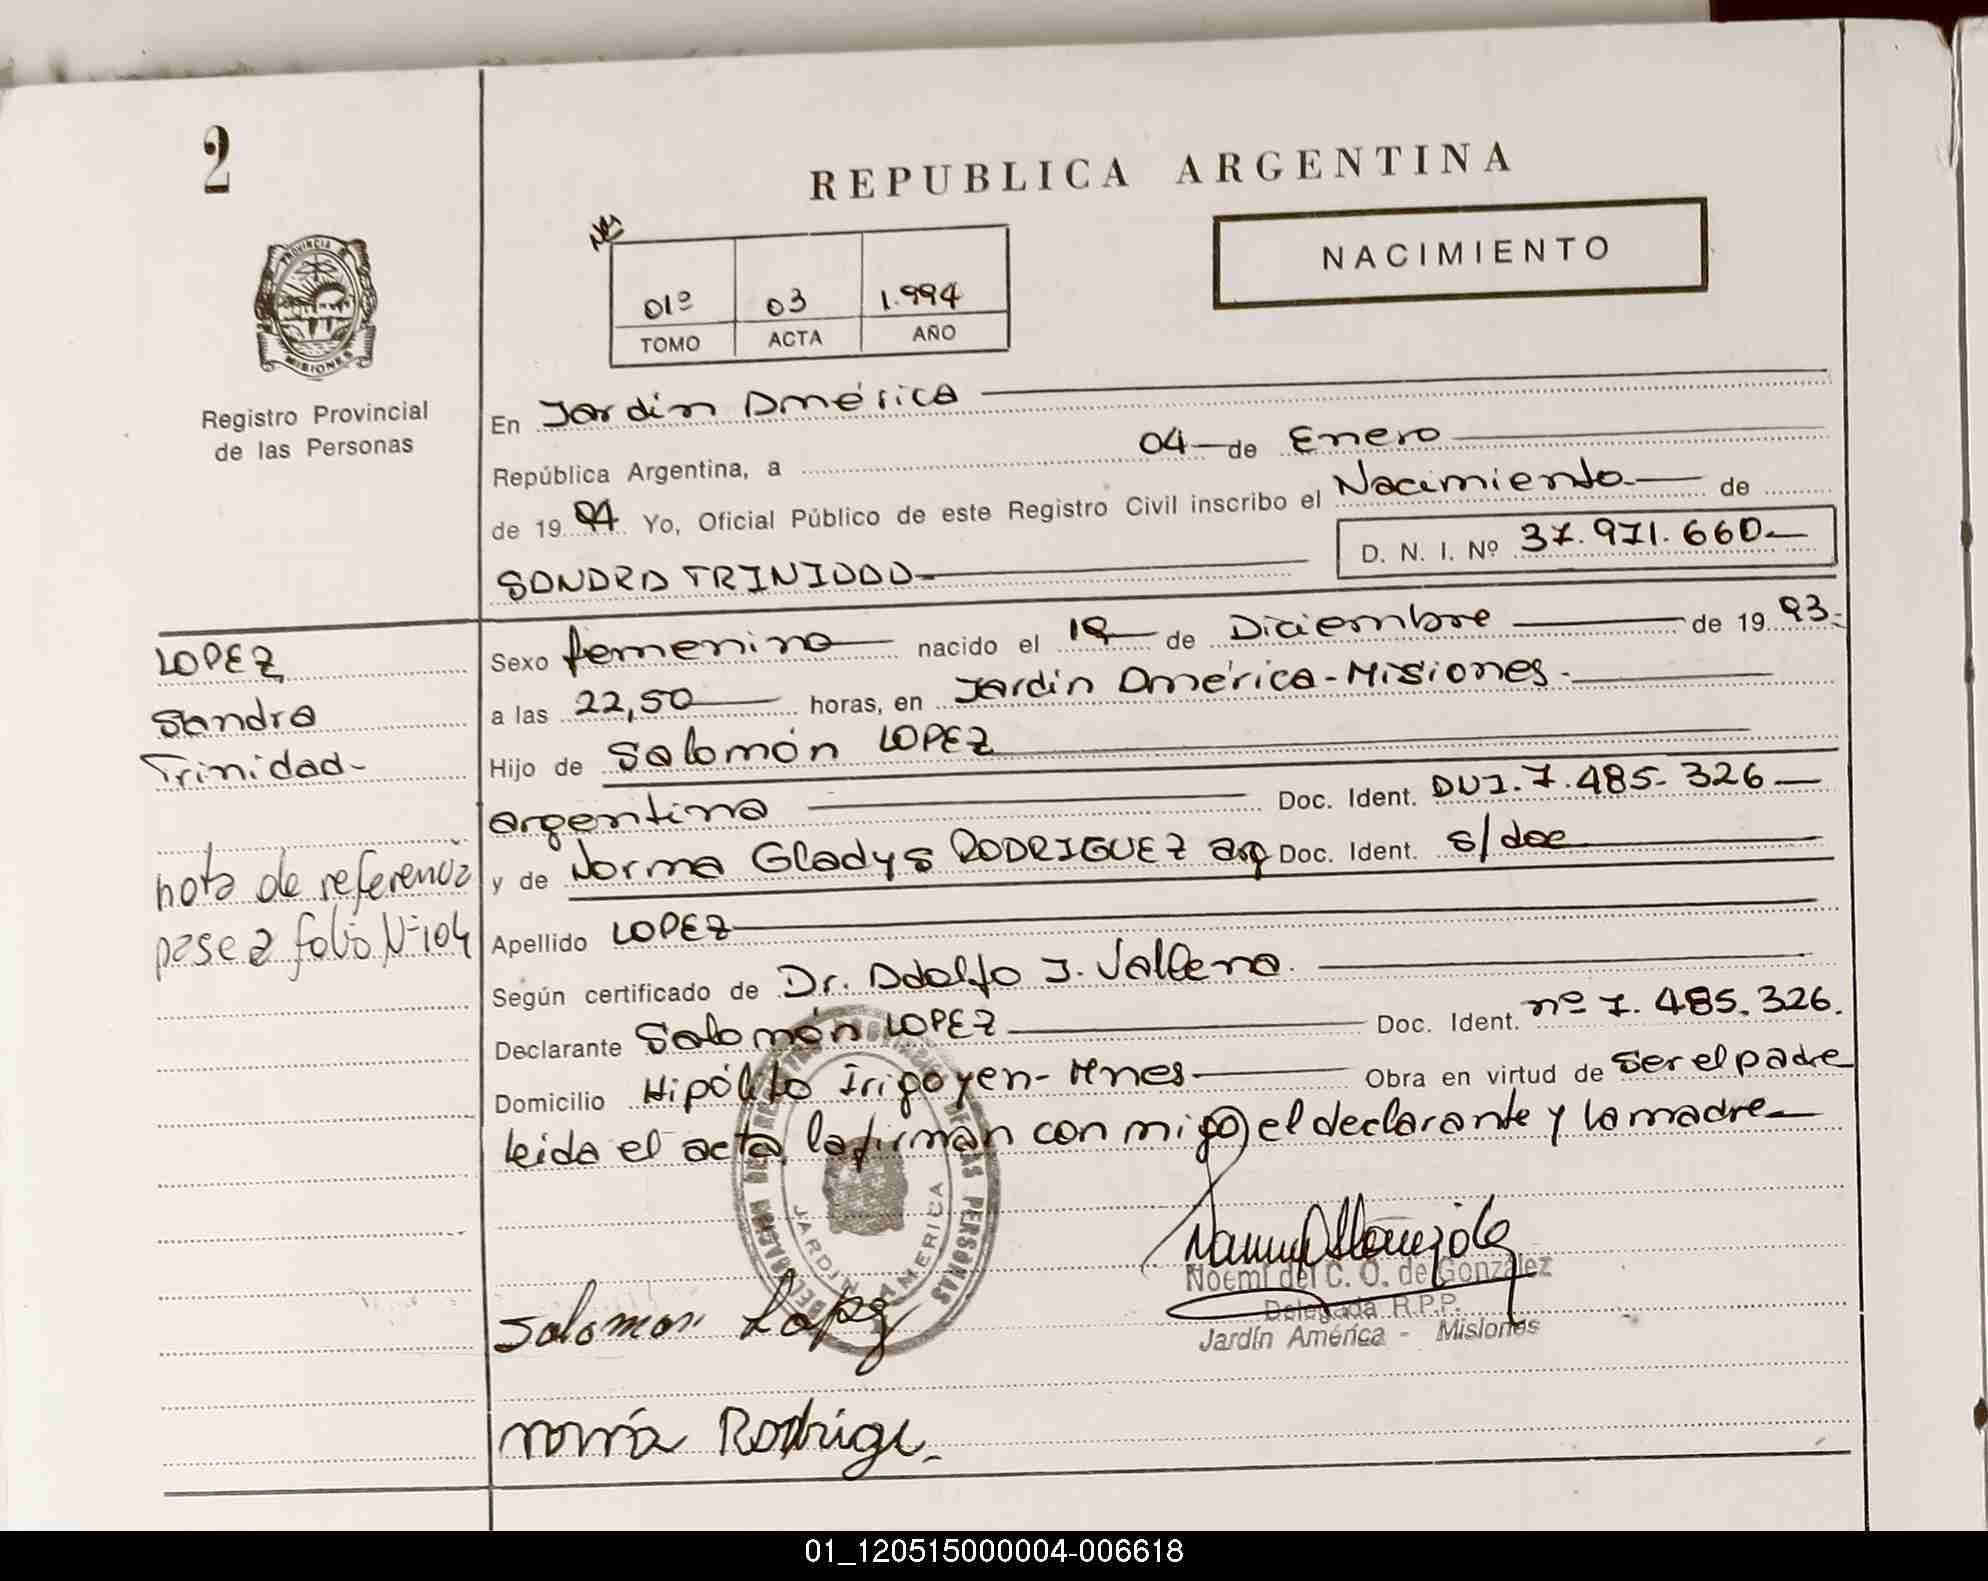 2
REPUBLICA ARGENTINA
NACIMIENTO
01º 03 1.994
TOMO ACTA AÑO
PROVINCIA
MISIONES
Registro Provincial
de las Personas
En Jardín América
República Argentina, a 04 de Enero
de 1994 Yo, Oficial Público de este Registro Civil inscribo el Nacimiento de
D. N. I. Nº 37.971.660
SANDRA TRINIDAD
LOPEZ
Sandra
Trinidad-
nota de referencia
pase a folio Nº 104
Sexo femenino nacido el de Diciembre de 1993.
a las 22,50 horas, en Jardín América-Misiones.
Hijo de Salomón LOPEZ
argentina Doc. Ident. DUI. 7.485.326
y de Norma Gladys RODRIGUEZ arg Doc. Ident. s/doc
Apellido LOPEZ
Según certificado de Dr. Adolfo J.
Declarante Salomón LOPEZ Doc. Ident. nº 7.485.326.
Domicilio Hipólito Irigoyen-Mnes Obra en virtud de ser el padre
leida el acta la firman con migo el declarante y la madre
JARDIN AMERICA
Noemí del C. O. de González
Delegada R.P.P.
Jardín América - Misiones
Salomon Lopez
Rodrigu
01_120515000004-006618